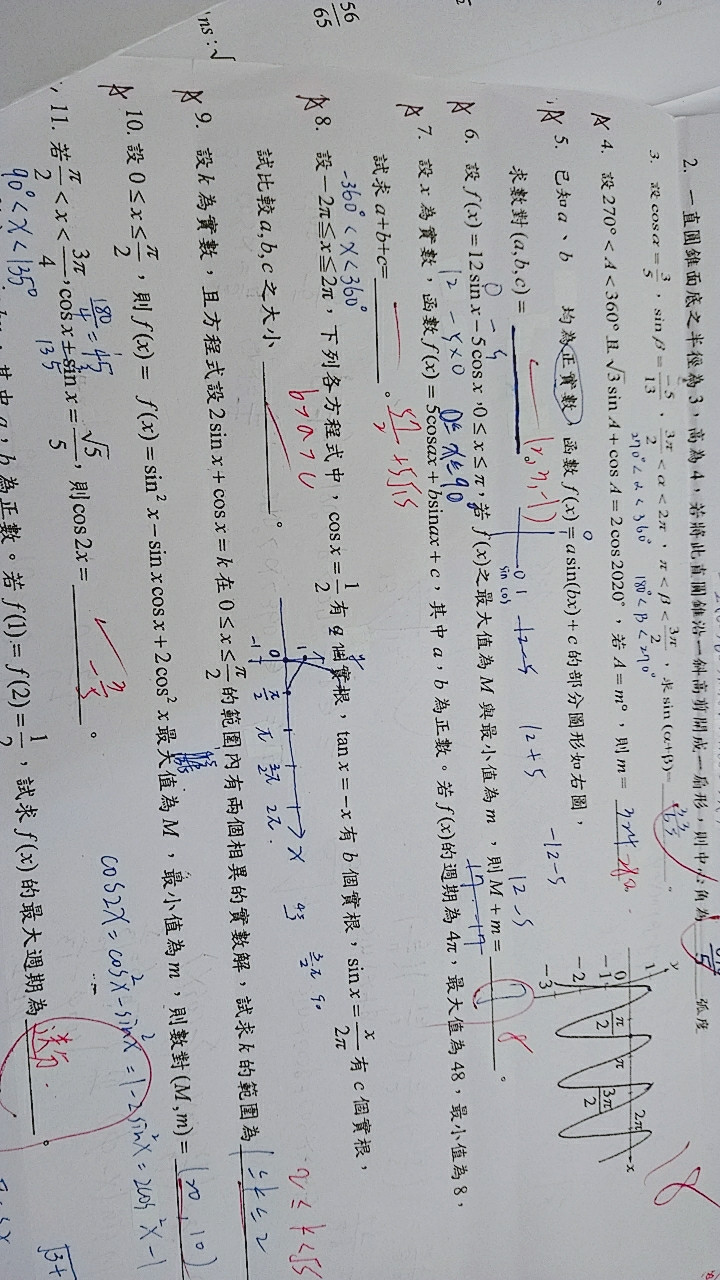 56
65
ns:√
2. 一直圓錐面底之半徑為3，高為4，若將此直圓錐沿一斜高剪開成一扇形，則中心角為 弧度
3. 設cosα=3/5，sinβ=-5/13，3π/2<α<2π，π<β<3π/2，求sin(α+β)=
270°<α<360° 180°<β<270°
4. 設270°<A<360°且√3sinA+cosA=2cos2020°，若A=m°，則m=
5. 已知a、b 均為正實數，函數f(x)=asin(bx)+c的部分圖形如右圖，
求數對(a,b,c)= (2,3,-1)
y
1
0
-1
-2
-3
π/2 π 3π/2 2π x
6. 設f(x)=12sinx-5cosx，0≤x≤π，若f(x)之最大值為M與最小值為m，則M+m= 。
8
7. 設x為實數，函數f(x)=5cosax+bsinax+c，其中a，b為正數。若f(x)的週期為4π，最大值為48，最小值為8，
試求a+b+c= 。 57/2+5√15
-360°<x<360°
8. 設-2π≤x≤2π，下列各方程式中，cosx=1/2有a個實根，tanx=-x有b個實根，sinx=x/2π有c個實根，
試比較a,b,c之大小 。
b>a>c
9. 設k為實數，且方程式設2sinx+cosx=k在0≤x≤π/2的範圍內有兩個相異的實數解，試求k的範圍為 1≤k≤2
2≤k<√5
10. 設0≤x≤π/2，則f(x)= f(x)=sin²x-sinxcosx+2cos²x最大值為M，最小值為m，則數對(M,m)=
180/4=45
135
11. 若π/2<x<3π/4，cosx+sinx=√5/5，則cos2x= 。 -3/5
90°<x<135°
cos2x=cos²x-sin²x=1-2sin²x=2cos²x-1
其中a，b為正數。若f(1)=f(2)=1/2，試求f(x)的最大週期為 。
送分.